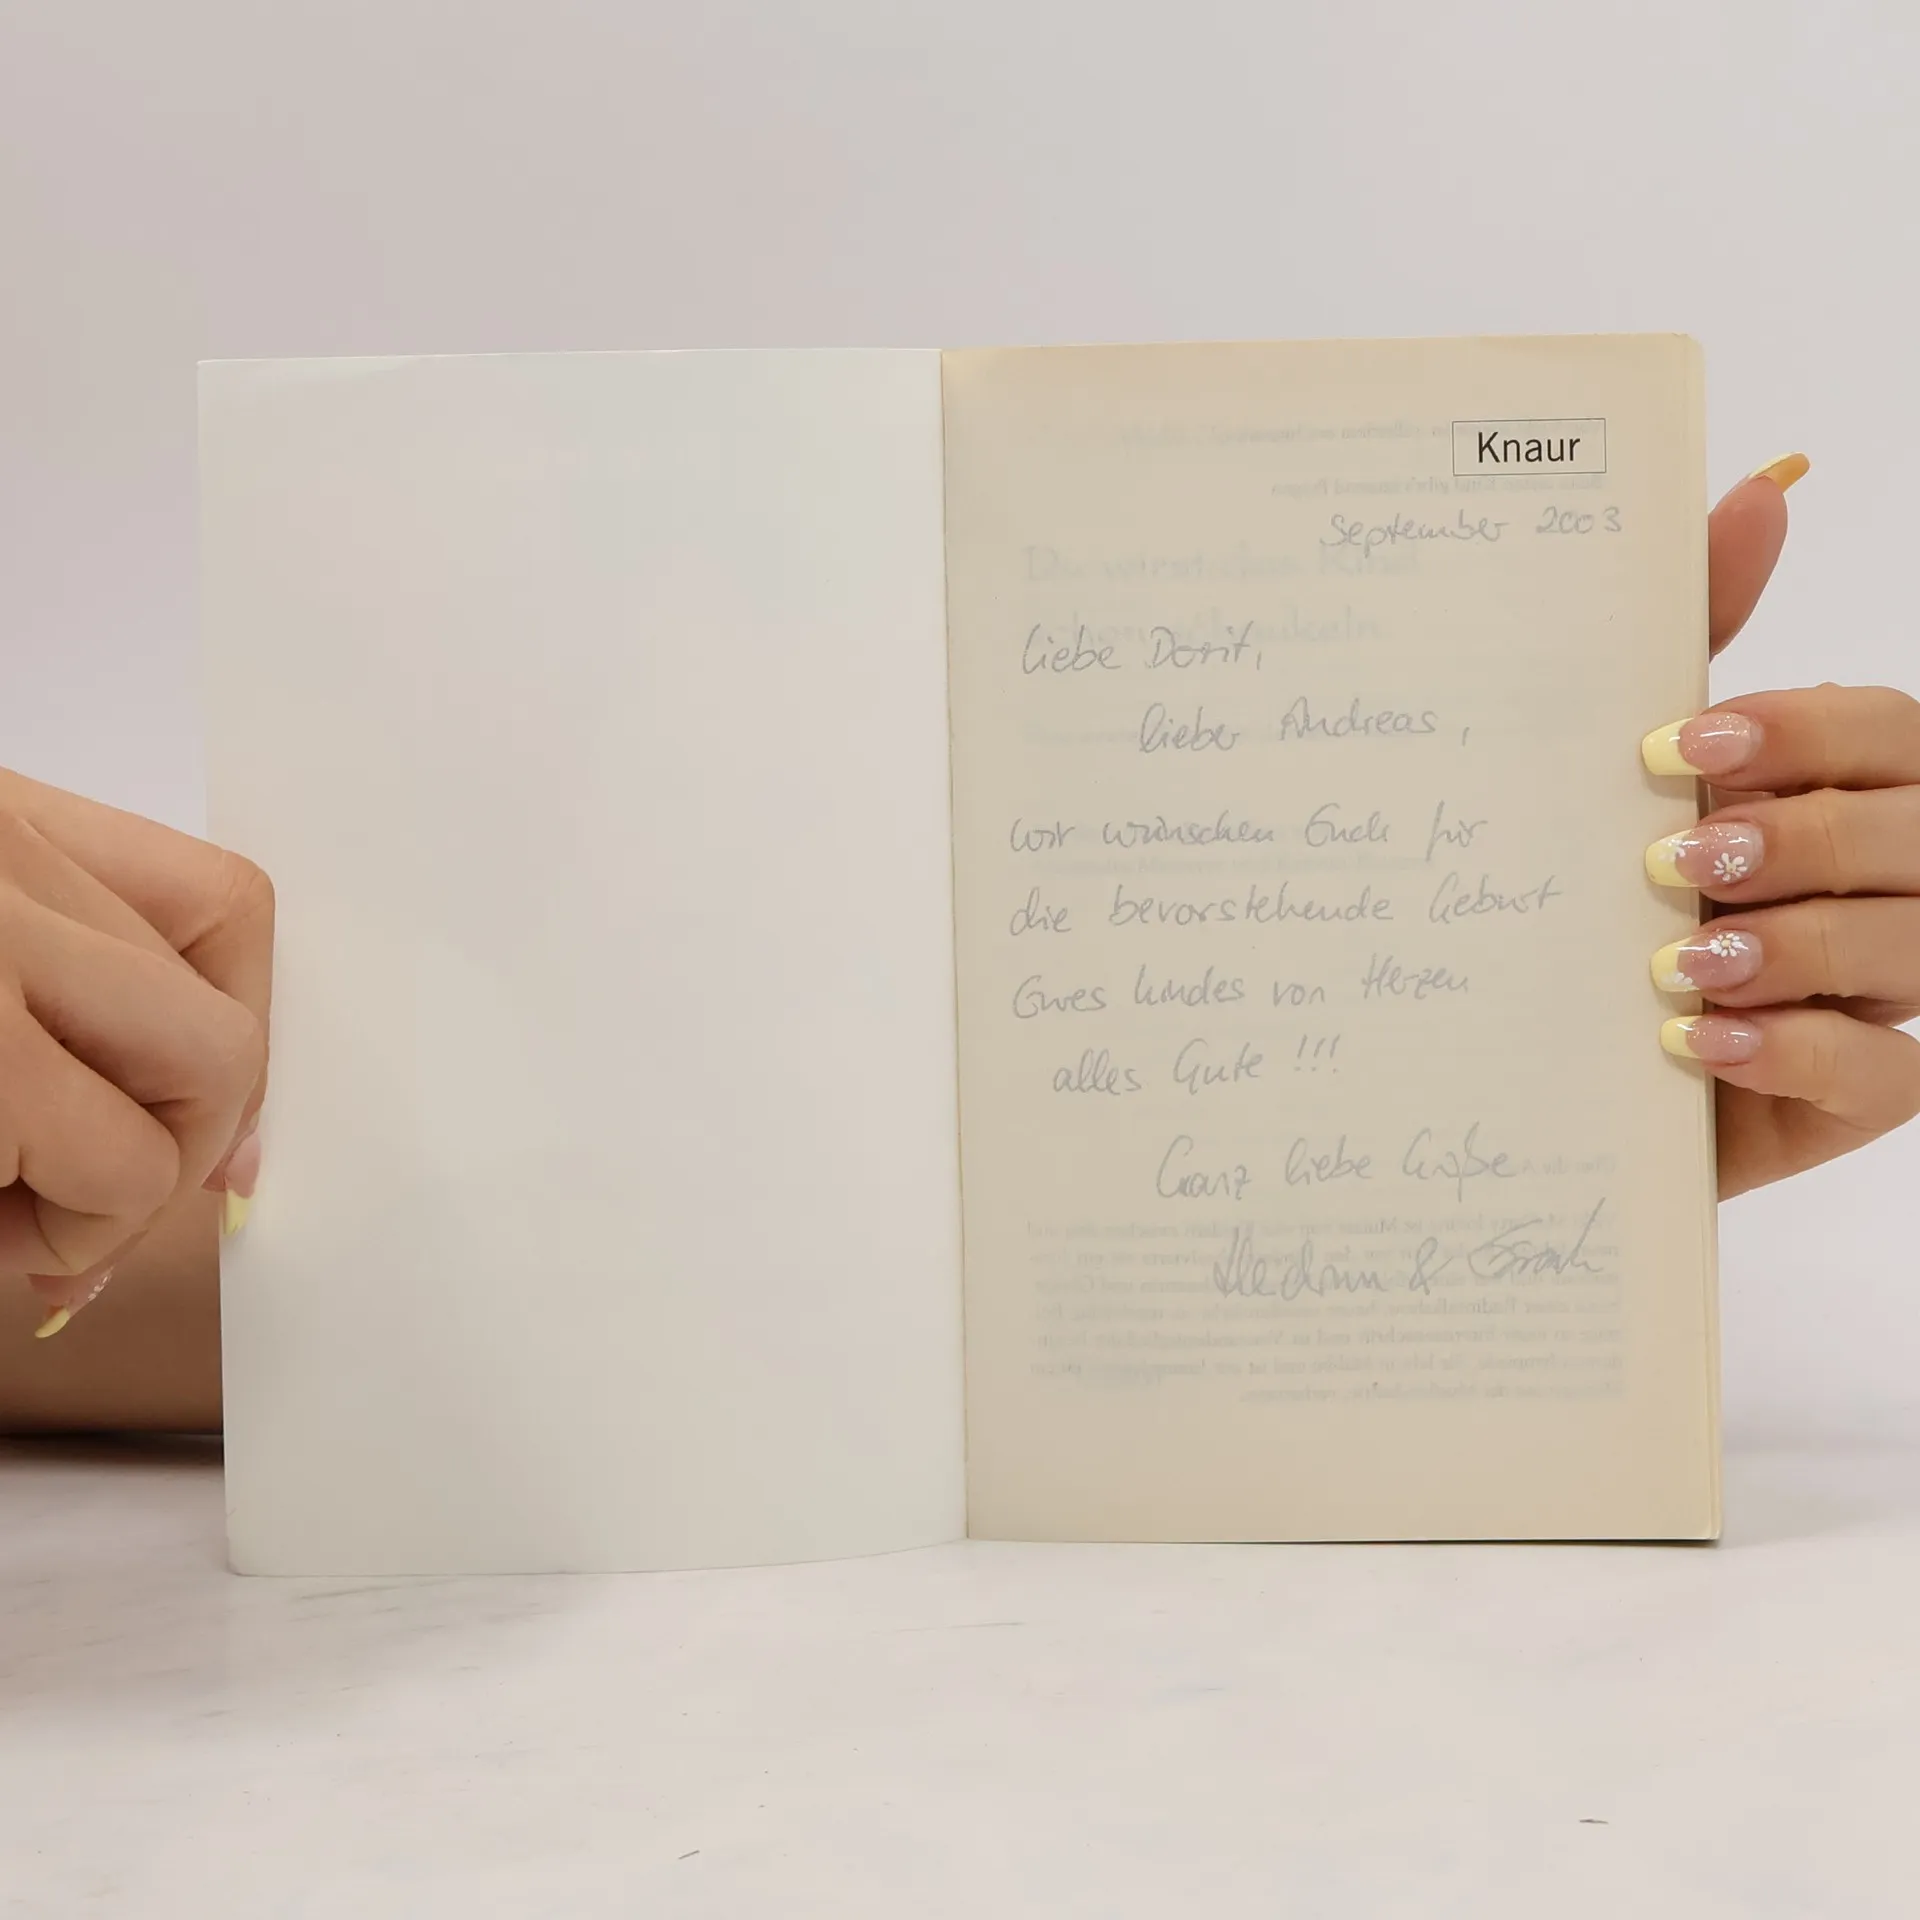 Knaur
September 2003
Liebe Dorit,
lieber Andreas,
wir wünschen Euch für
die bevorstehende Geburt
Eures Kindes von Herzen
alles Gute !!!
Ganz liebe Grüße
& Frank